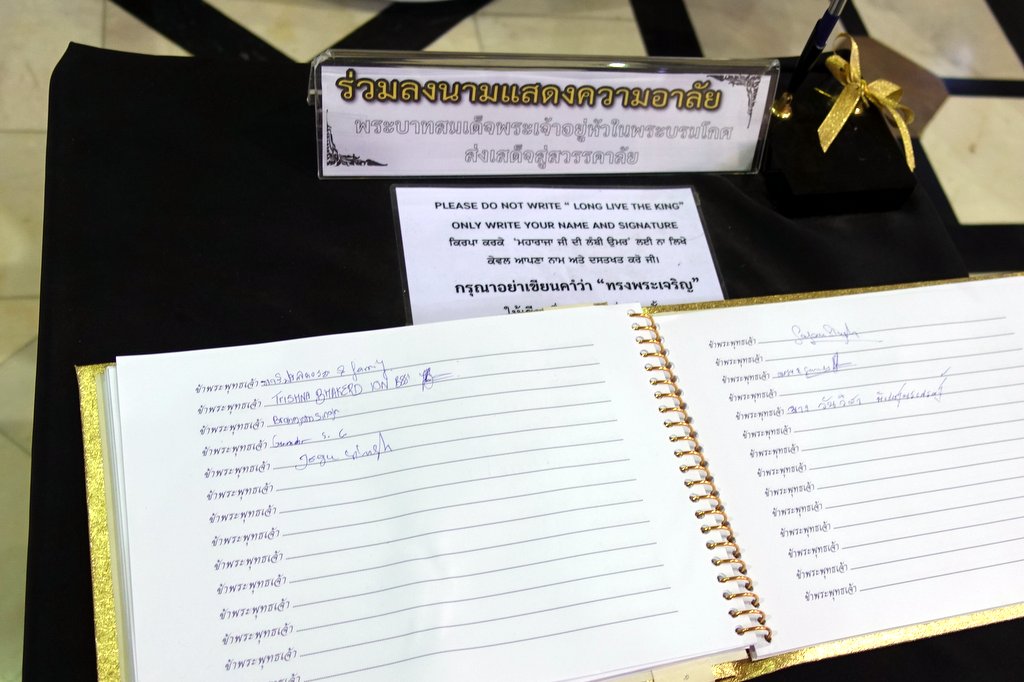 ร่วมลงนามแสดงความอาลัย
พระบาทสมเด็จพระเจ้าอยู่หัวในพระบรมโกศ
ส่งเสด็จสู่สวรรคาลัย
PLEASE DO NOT WRITE “ LONG LIVE THE KING”
ONLY WRITE YOUR NAME AND SIGNATURE
ਕਿਰਪਾ ਕਰਕੇ 'ਮਹਾਰਾਜਾ ਜੀ ਦੀ ਲੰਬੀ ਉਮਰ' ਲਈ ਨਾ ਲਿਖੋ
ਕੇਵਲ ਆਪਣਾ ਨਾਮ ਅਤੇ ਦਸਤਖਤ ਕਰੋ ਜੀ।
กรุณาอย่าเขียนคำว่า “ทรงพระเจริญ”
ข้าพระพุทธเจ้า & family
ข้าพระพุทธเจ้า TRISHNA
ข้าพระพุทธเจ้า
ข้าพระพุทธเจ้า
ข้าพระพุทธเจ้า
ข้าพระพุทธเจ้า
ข้าพระพุทธเจ้า
ข้าพระพุทธเจ้า
ข้าพระพุทธเจ้า
ข้าพระพุทธเจ้า
ข้าพระพุทธเจ้า
ข้าพระพุทธเจ้า
ข้าพระพุทธเจ้า
ข้าพระพุทธเจ้า
ข้าพระพุทธเจ้า
ข้าพระพุทธเจ้า
ข้าพระพุทธเจ้า นาง วันวิสา
ข้าพระพุทธเจ้า
ข้าพระพุทธเจ้า
ข้าพระพุทธเจ้า
ข้าพระพุทธเจ้า
ข้าพระพุทธเจ้า
ข้าพระพุทธเจ้า
ข้าพระพุทธเจ้า
ข้าพระพุทธเจ้า